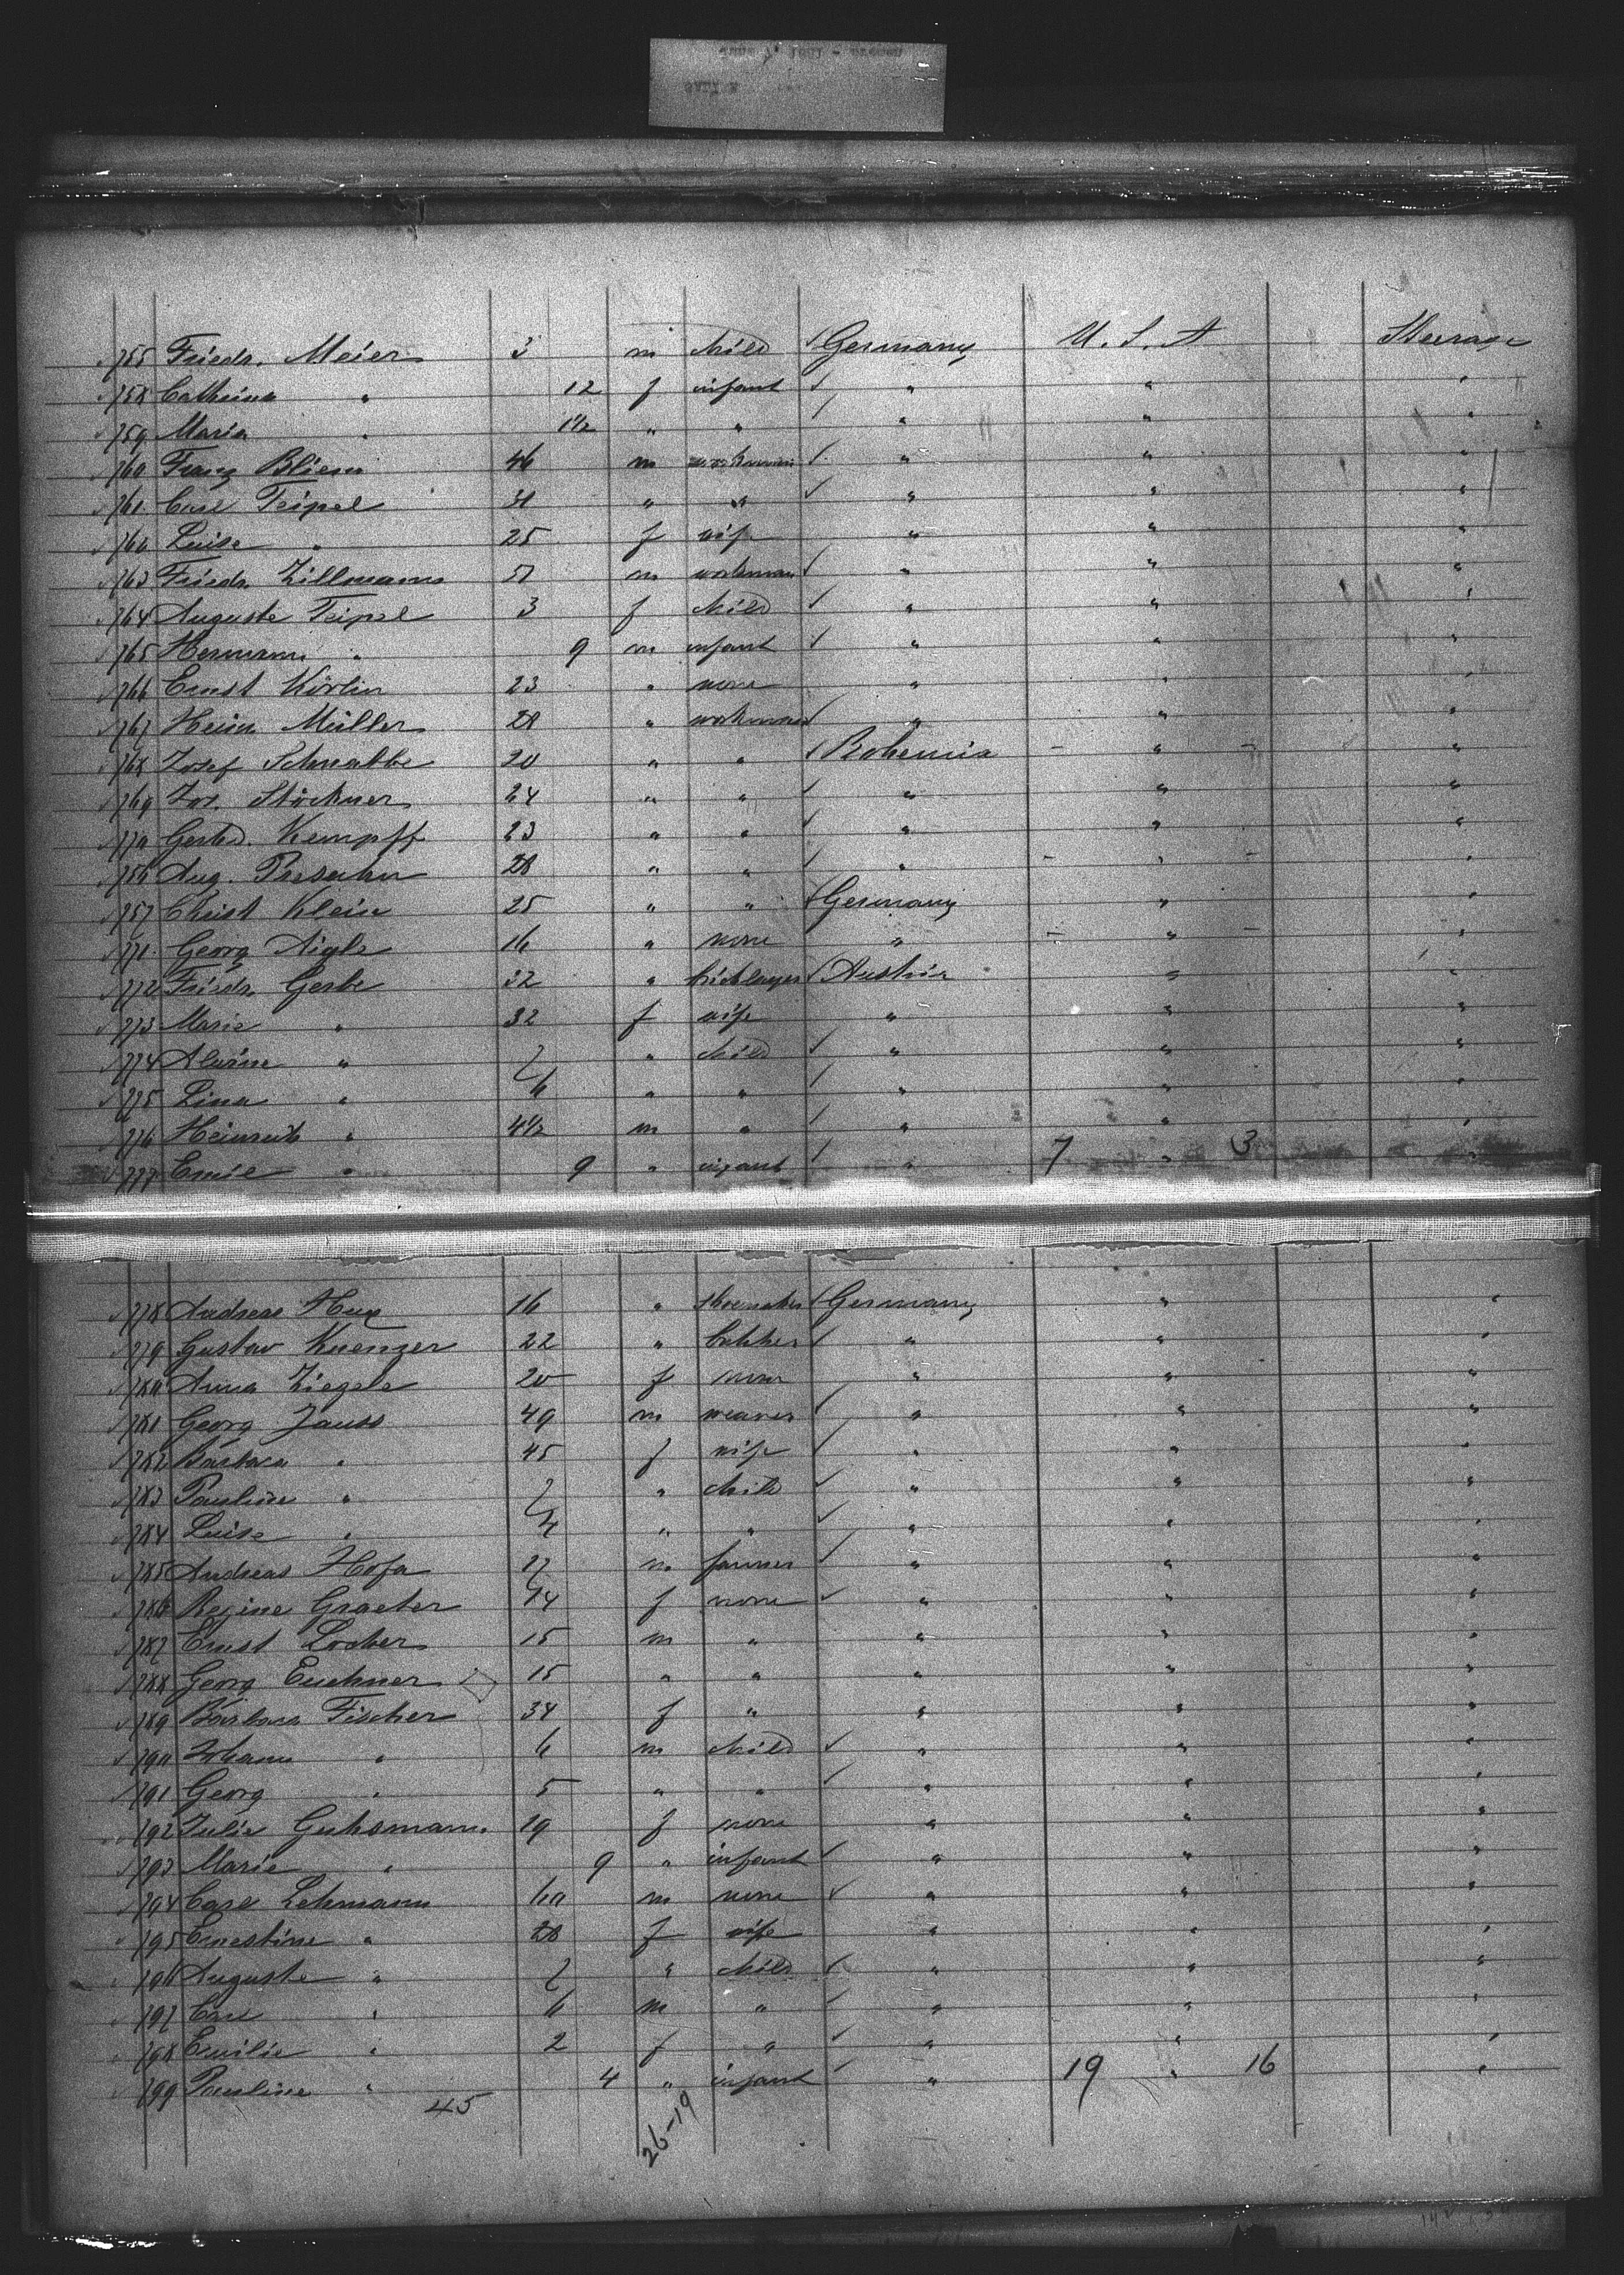 755 Friedr. Meier 3 m child Germany U.S.A Steerage
758 Cathrina " 12 f infant " " "
759 Maria " 1½ " " " " "
760 Franz Bliesn 46 m workman " " "
761 Carl Teipel 31 " " " " "
762 Luise " 25 f wife " " "
763 Friedr. Zillmann 51 m workman " " "
764 Auguste Teipel 3 f child " " "
765 Hermann " 9 m infant " " "
766 Ernst Körlin 23 " none " " "
767 Heinr. Müller 28 " workman " " "
768 Josef Schwabbe 20 " " Bohemia - " - "
769 Jos. Stöckner 24 " " " " "
770 Gerhd. Kempff 23 " " " " "
756 Aug. Presuhn 28 " " " - " - "
757 Christ Klein 25 " " Germany " "
771 Georg Aigle 16 " none " - " - "
772 Friedr. Gerbe 32 " bricklayer Austria " "
773 Marie " 32 f wife " " "
774 Alwine " 7 " child " " "
775 Lina " 6 " " " " "
776 Heinrich " 4½ m " " " "
777 Emil " 9 " infant " 7 " 3 "
778 Andreas Hug 16 " shoemaker Germany " "
779 Gustav Kuenzer 22 " bakker " " "
780 Anna Ziegele 20 f none " " "
781 Georg Jauss 49 m weaver " " "
782 Barbara " 45 f wife " " "
783 Pauline " 7 " child " " "
784 Luise " 4 " " " " "
785 Andreas Hofa 17 m farmer " " "
786 Regine Graeter 14 f none " " "
787 Ernst Locher 15 m " " " "
788 Georg Euchner 15 " " " " "
789 Barbara Fischer 34 f " " " "
790 Johann " 6 m child " " "
791 Georg " 5 " " " " "
792 Julie Guhsmann 19 f none " " "
793 Marie " 9 " infant " " "
794 Carl Lehmann 60 m none " " "
795 Ernestine " 28 f wife " " "
796 Auguste " 7 " child " " "
797 Carl " 6 m " " " "
798 Emilie " 2 f " " " "
799 Pauline " 4 " infant " 19 " 16 "
45
26-19